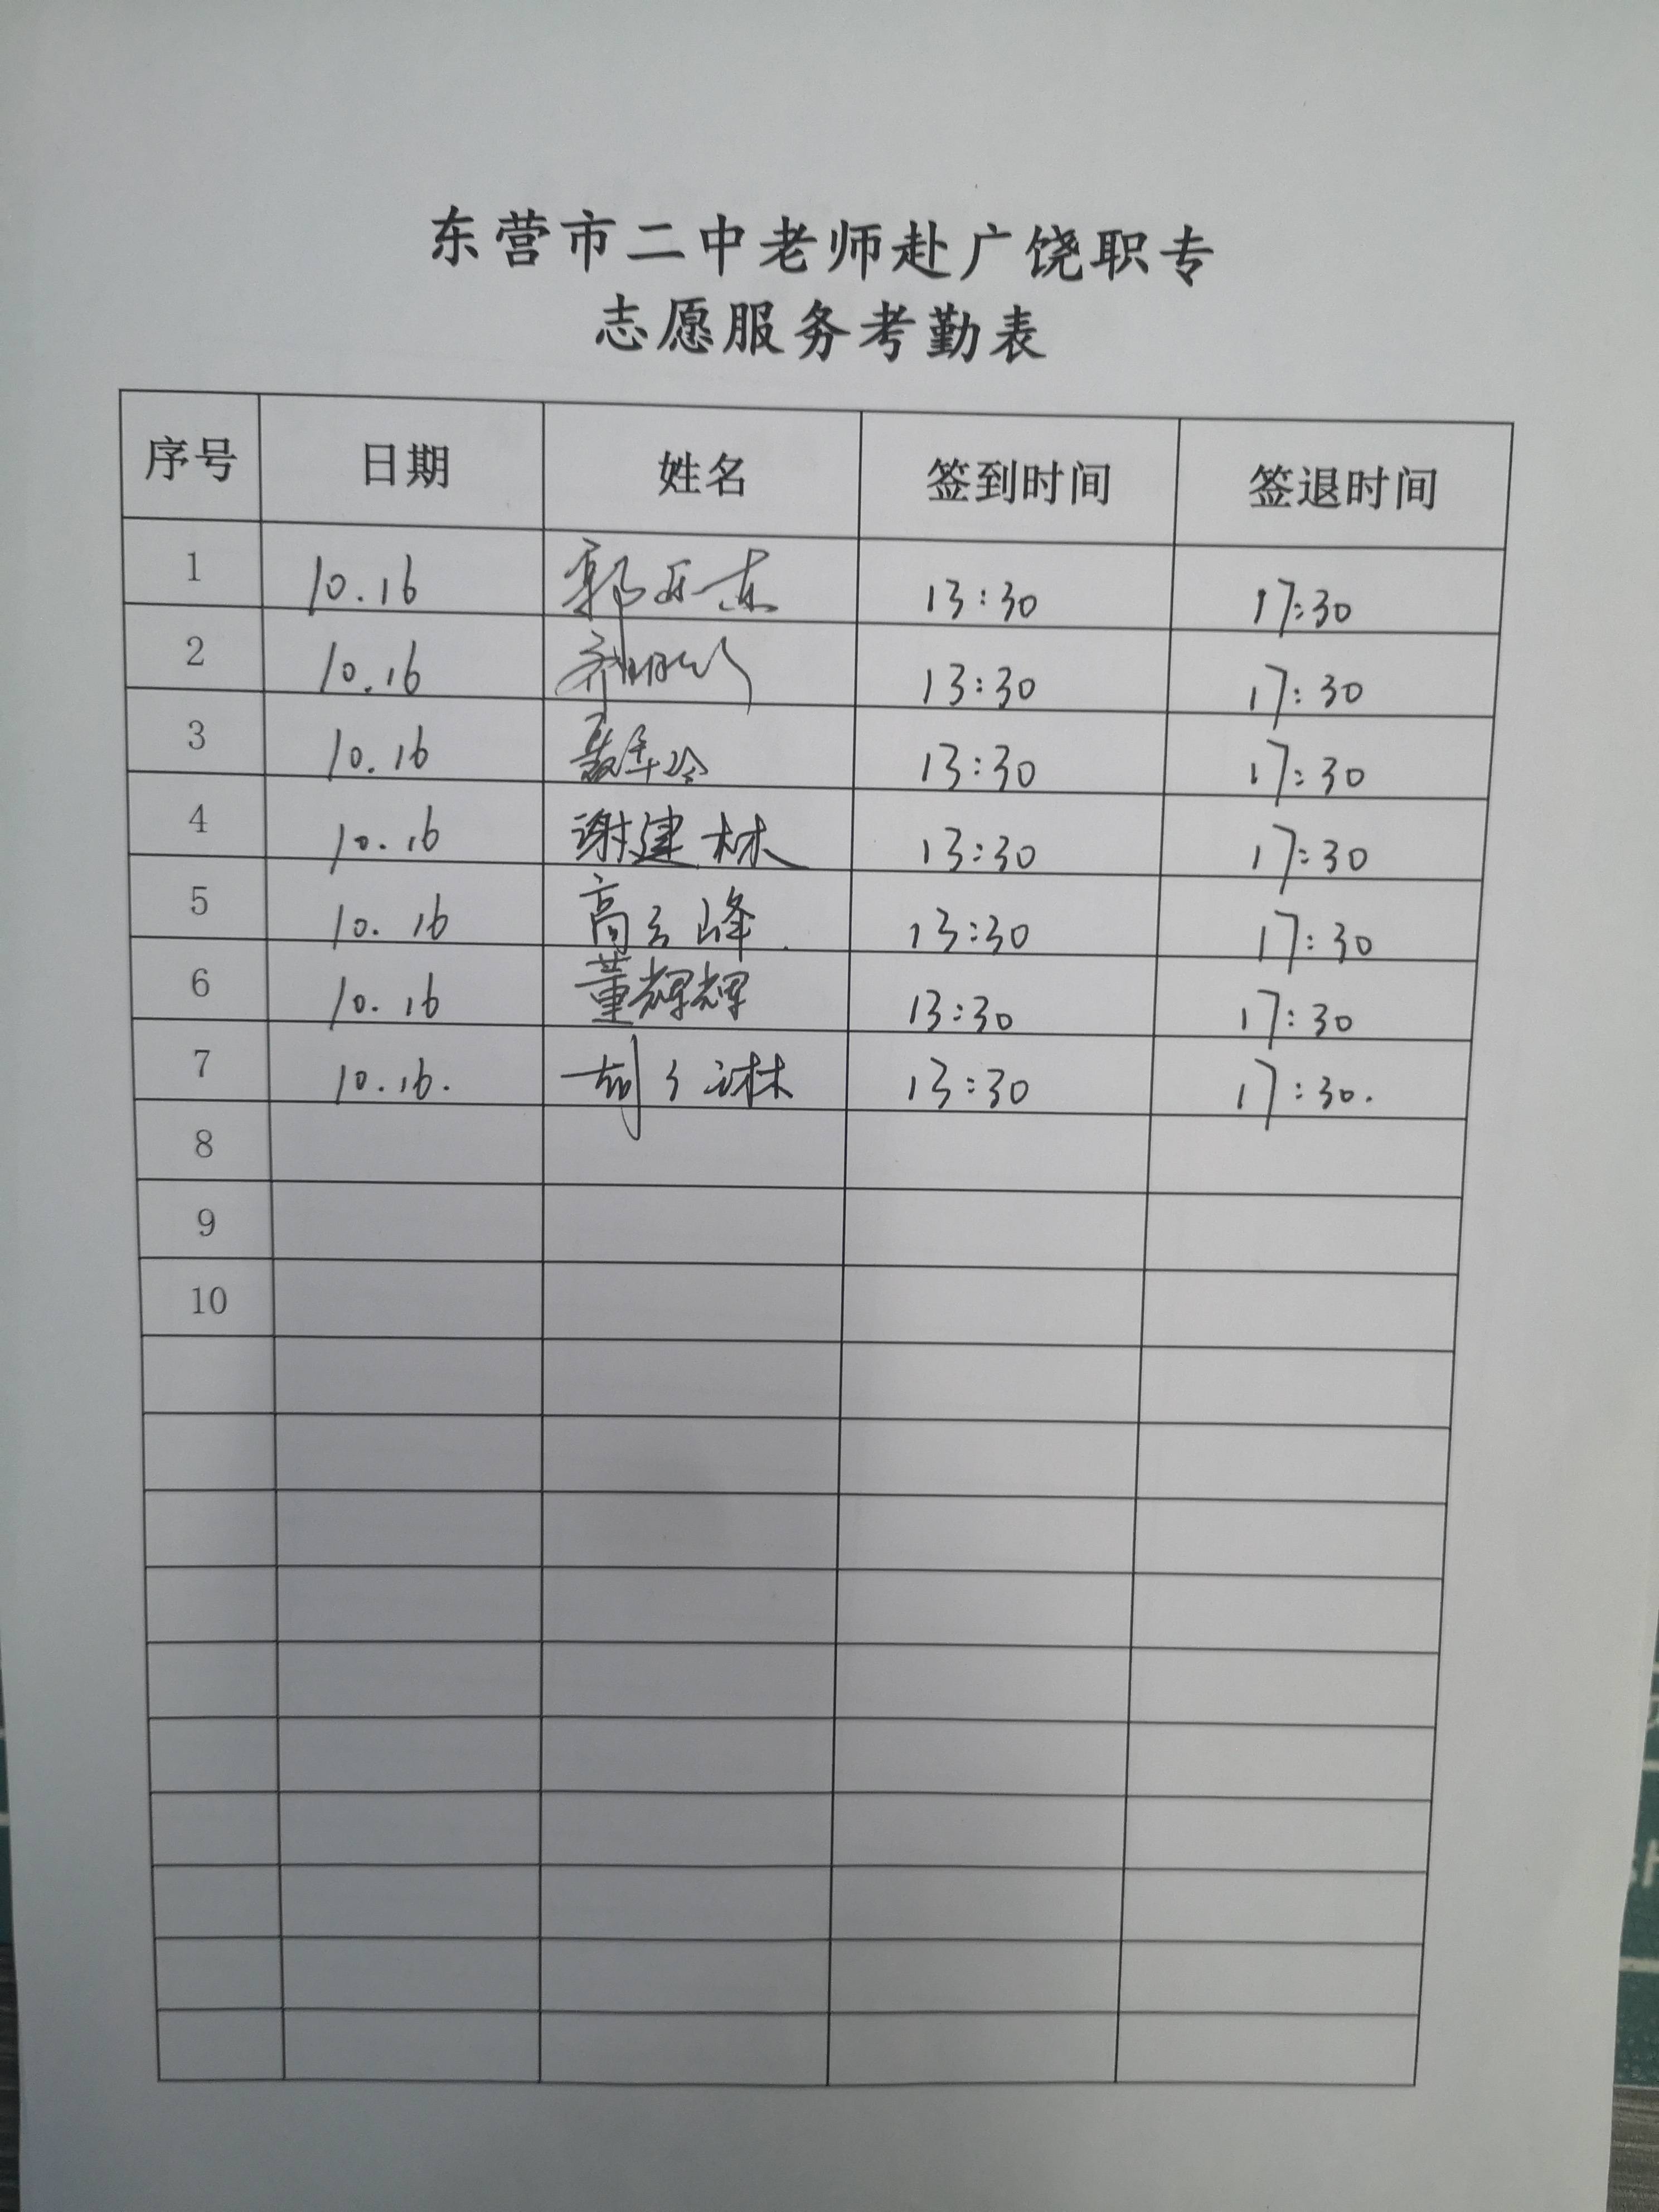 东营市二中老师赴广饶职专
志愿服务考勤表
序号 日期 姓名 签到时间 签退时间
1 10.16 郭 13:30 17:30
2 10.16 13:30 17:30
3 10.16 13:30 17:30
4 10.16 谢建林 13:30 17:30
5 10.16 高云峰 13:30 17:30
6 10.16 董辉辉 13:30 17:30
7 10.16. 13:30 17:30.
8
9
10